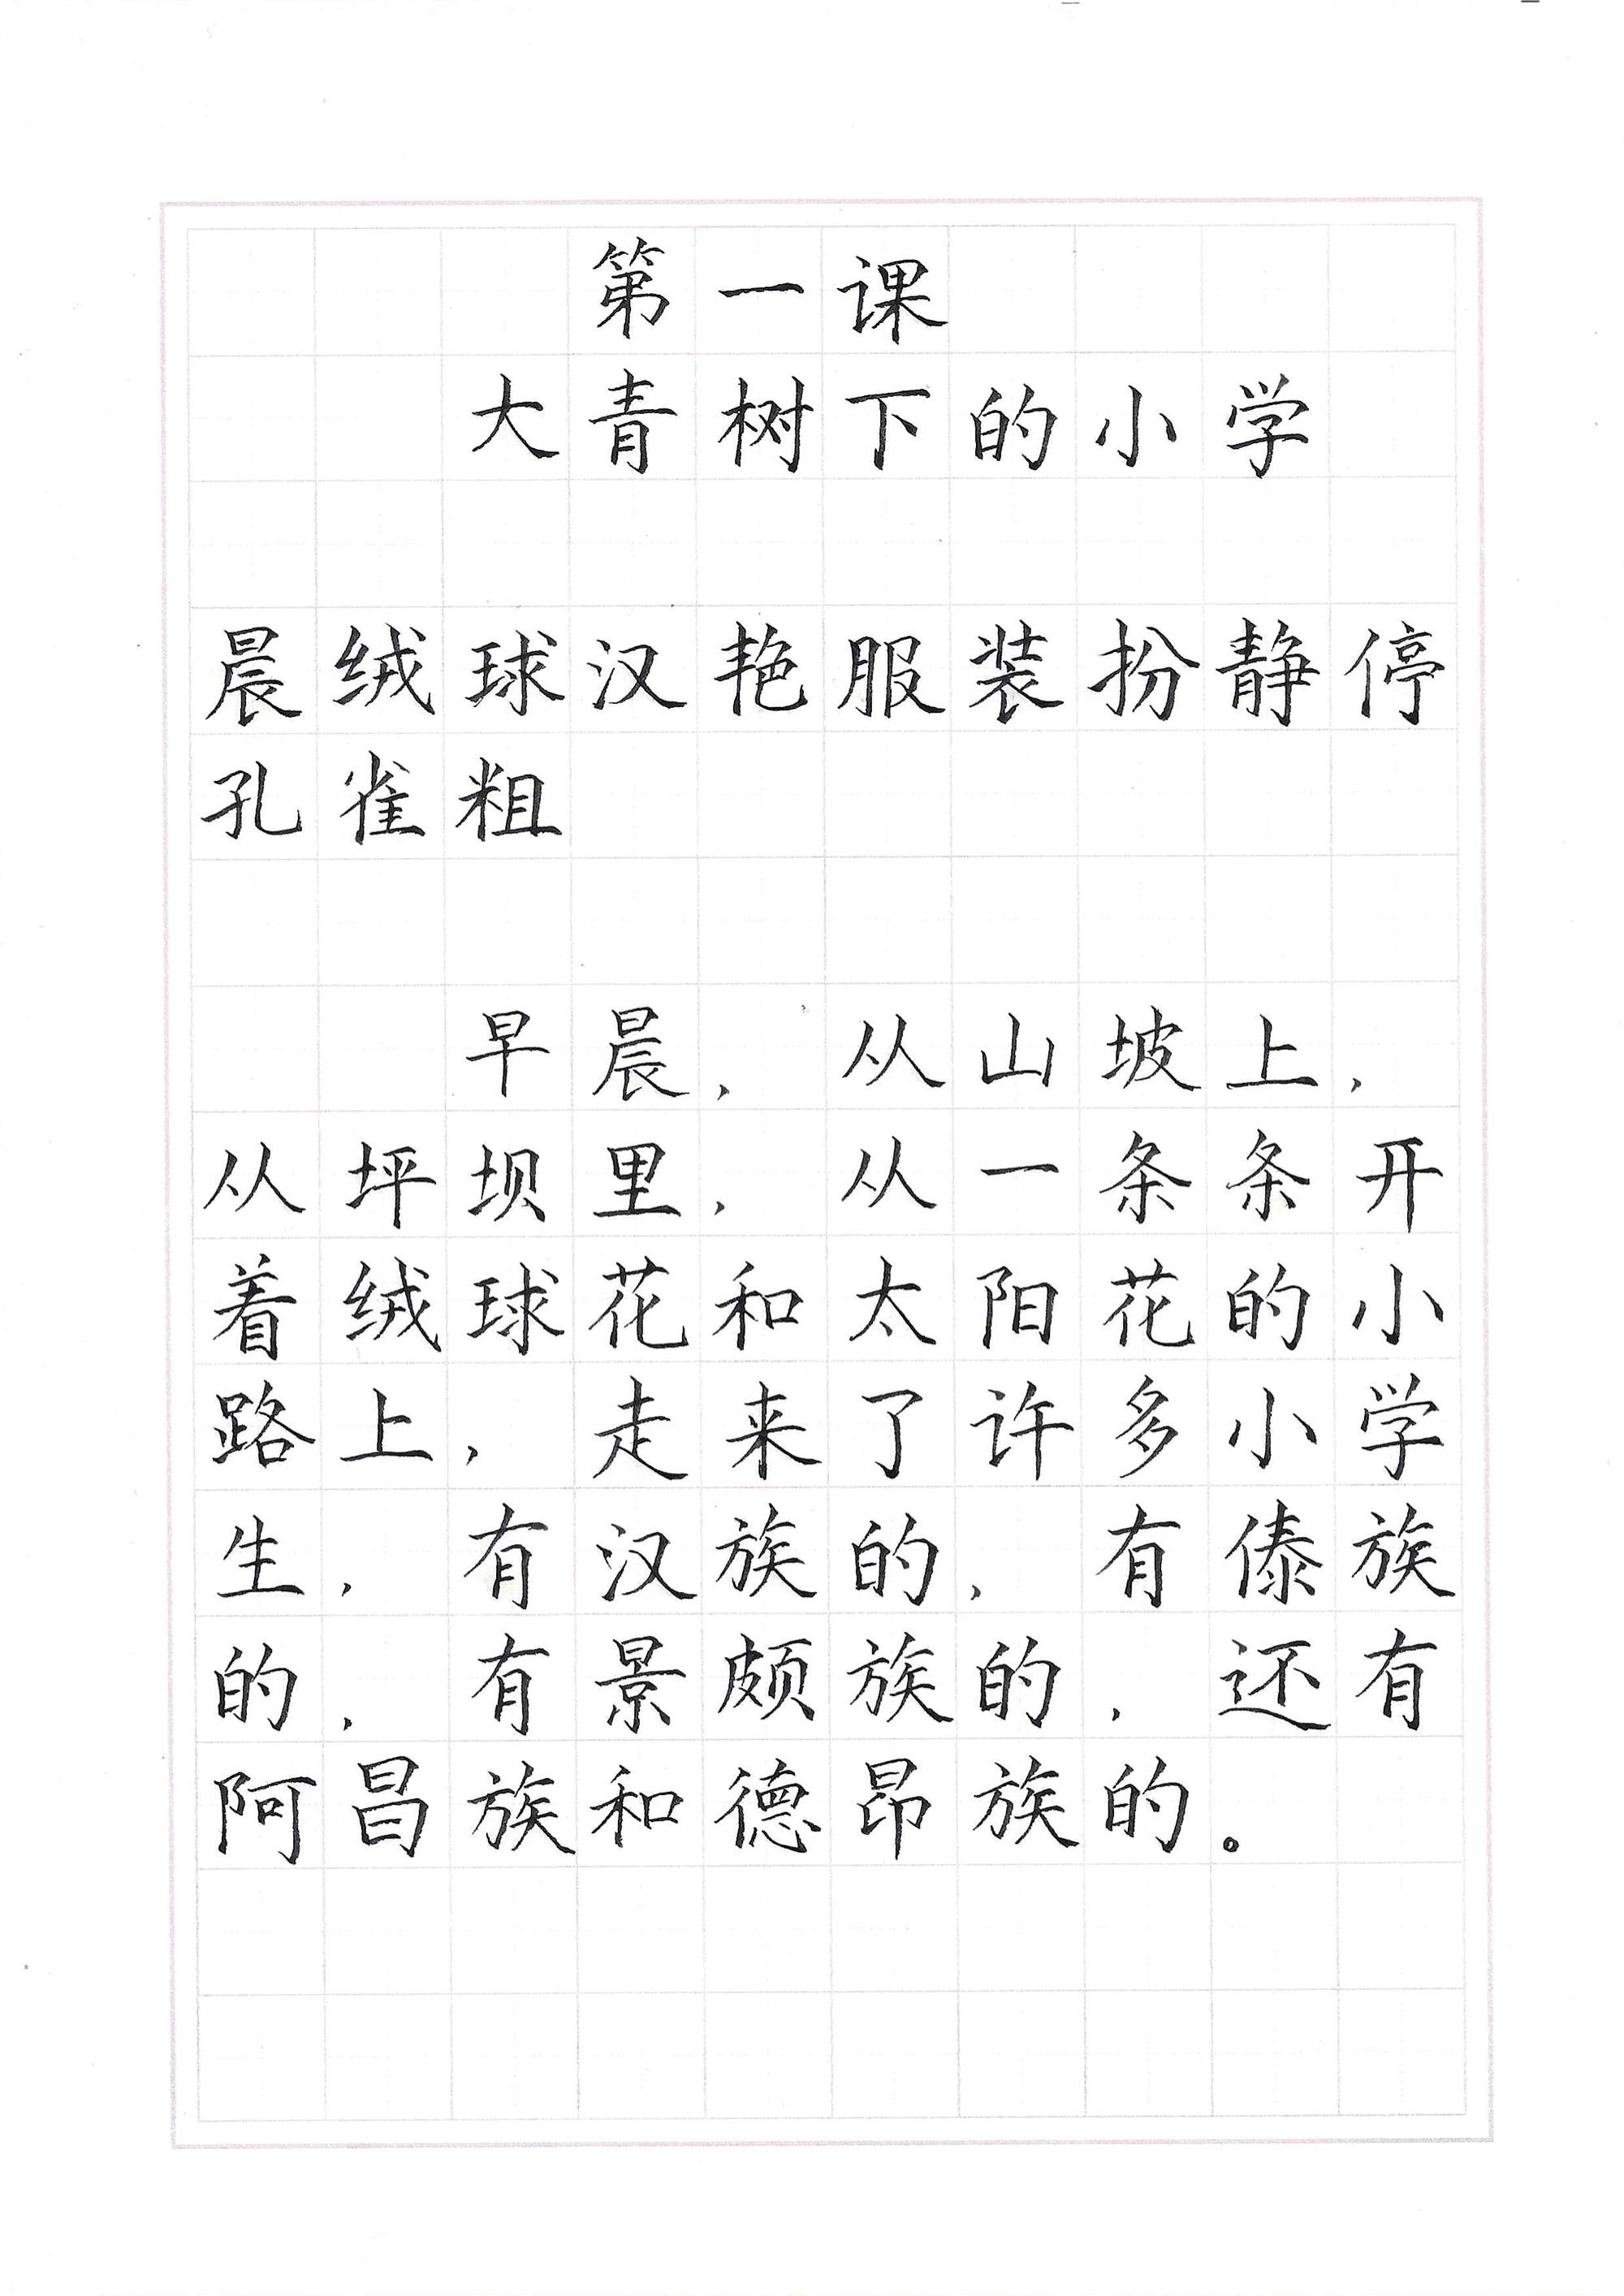 第一课
大青树下的小学
晨绒球汉艳服装扮静停
孔雀粗
早晨，从山坡上，
从坪坝里，从一条条开
着绒球花和太阳花的小
路上，走来了许多小学
生，有汉族的，有傣族
的，有景颇族的，还有
阿昌族和德昂族的。